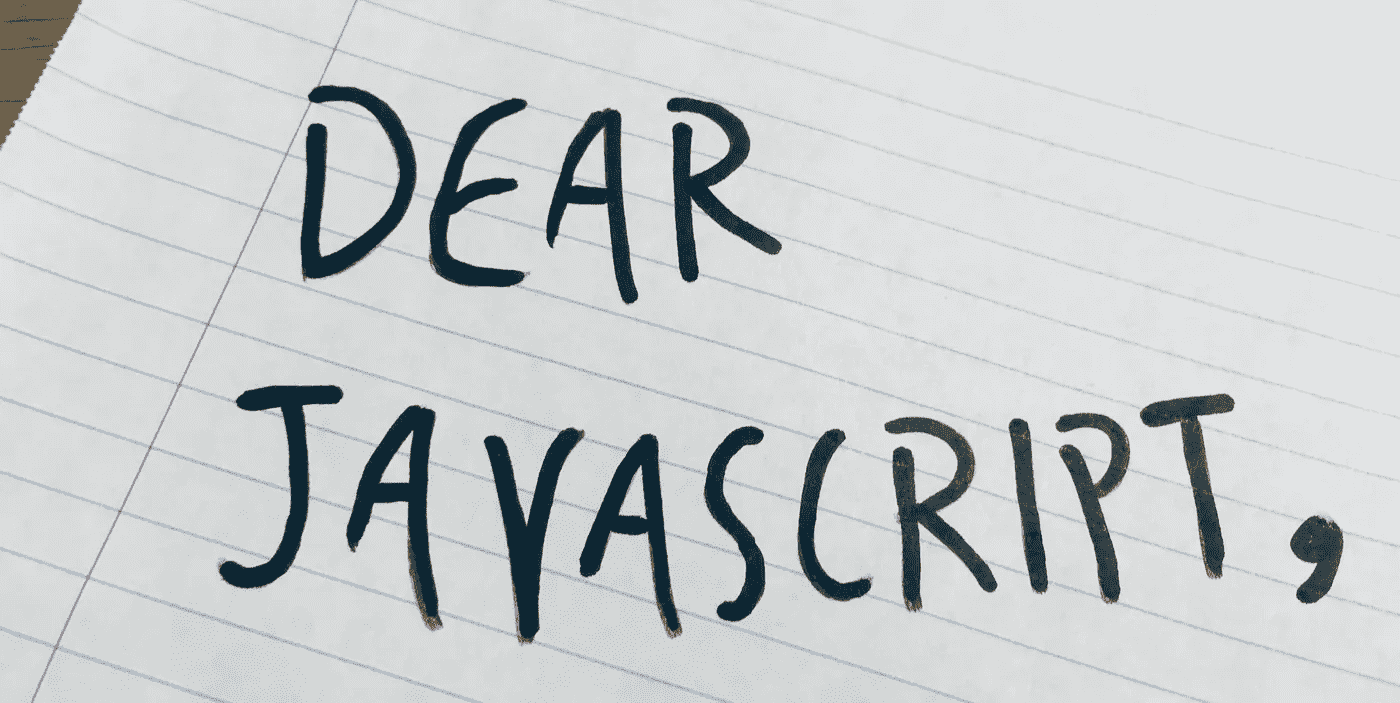 DEAR
JAVASCRIPT,